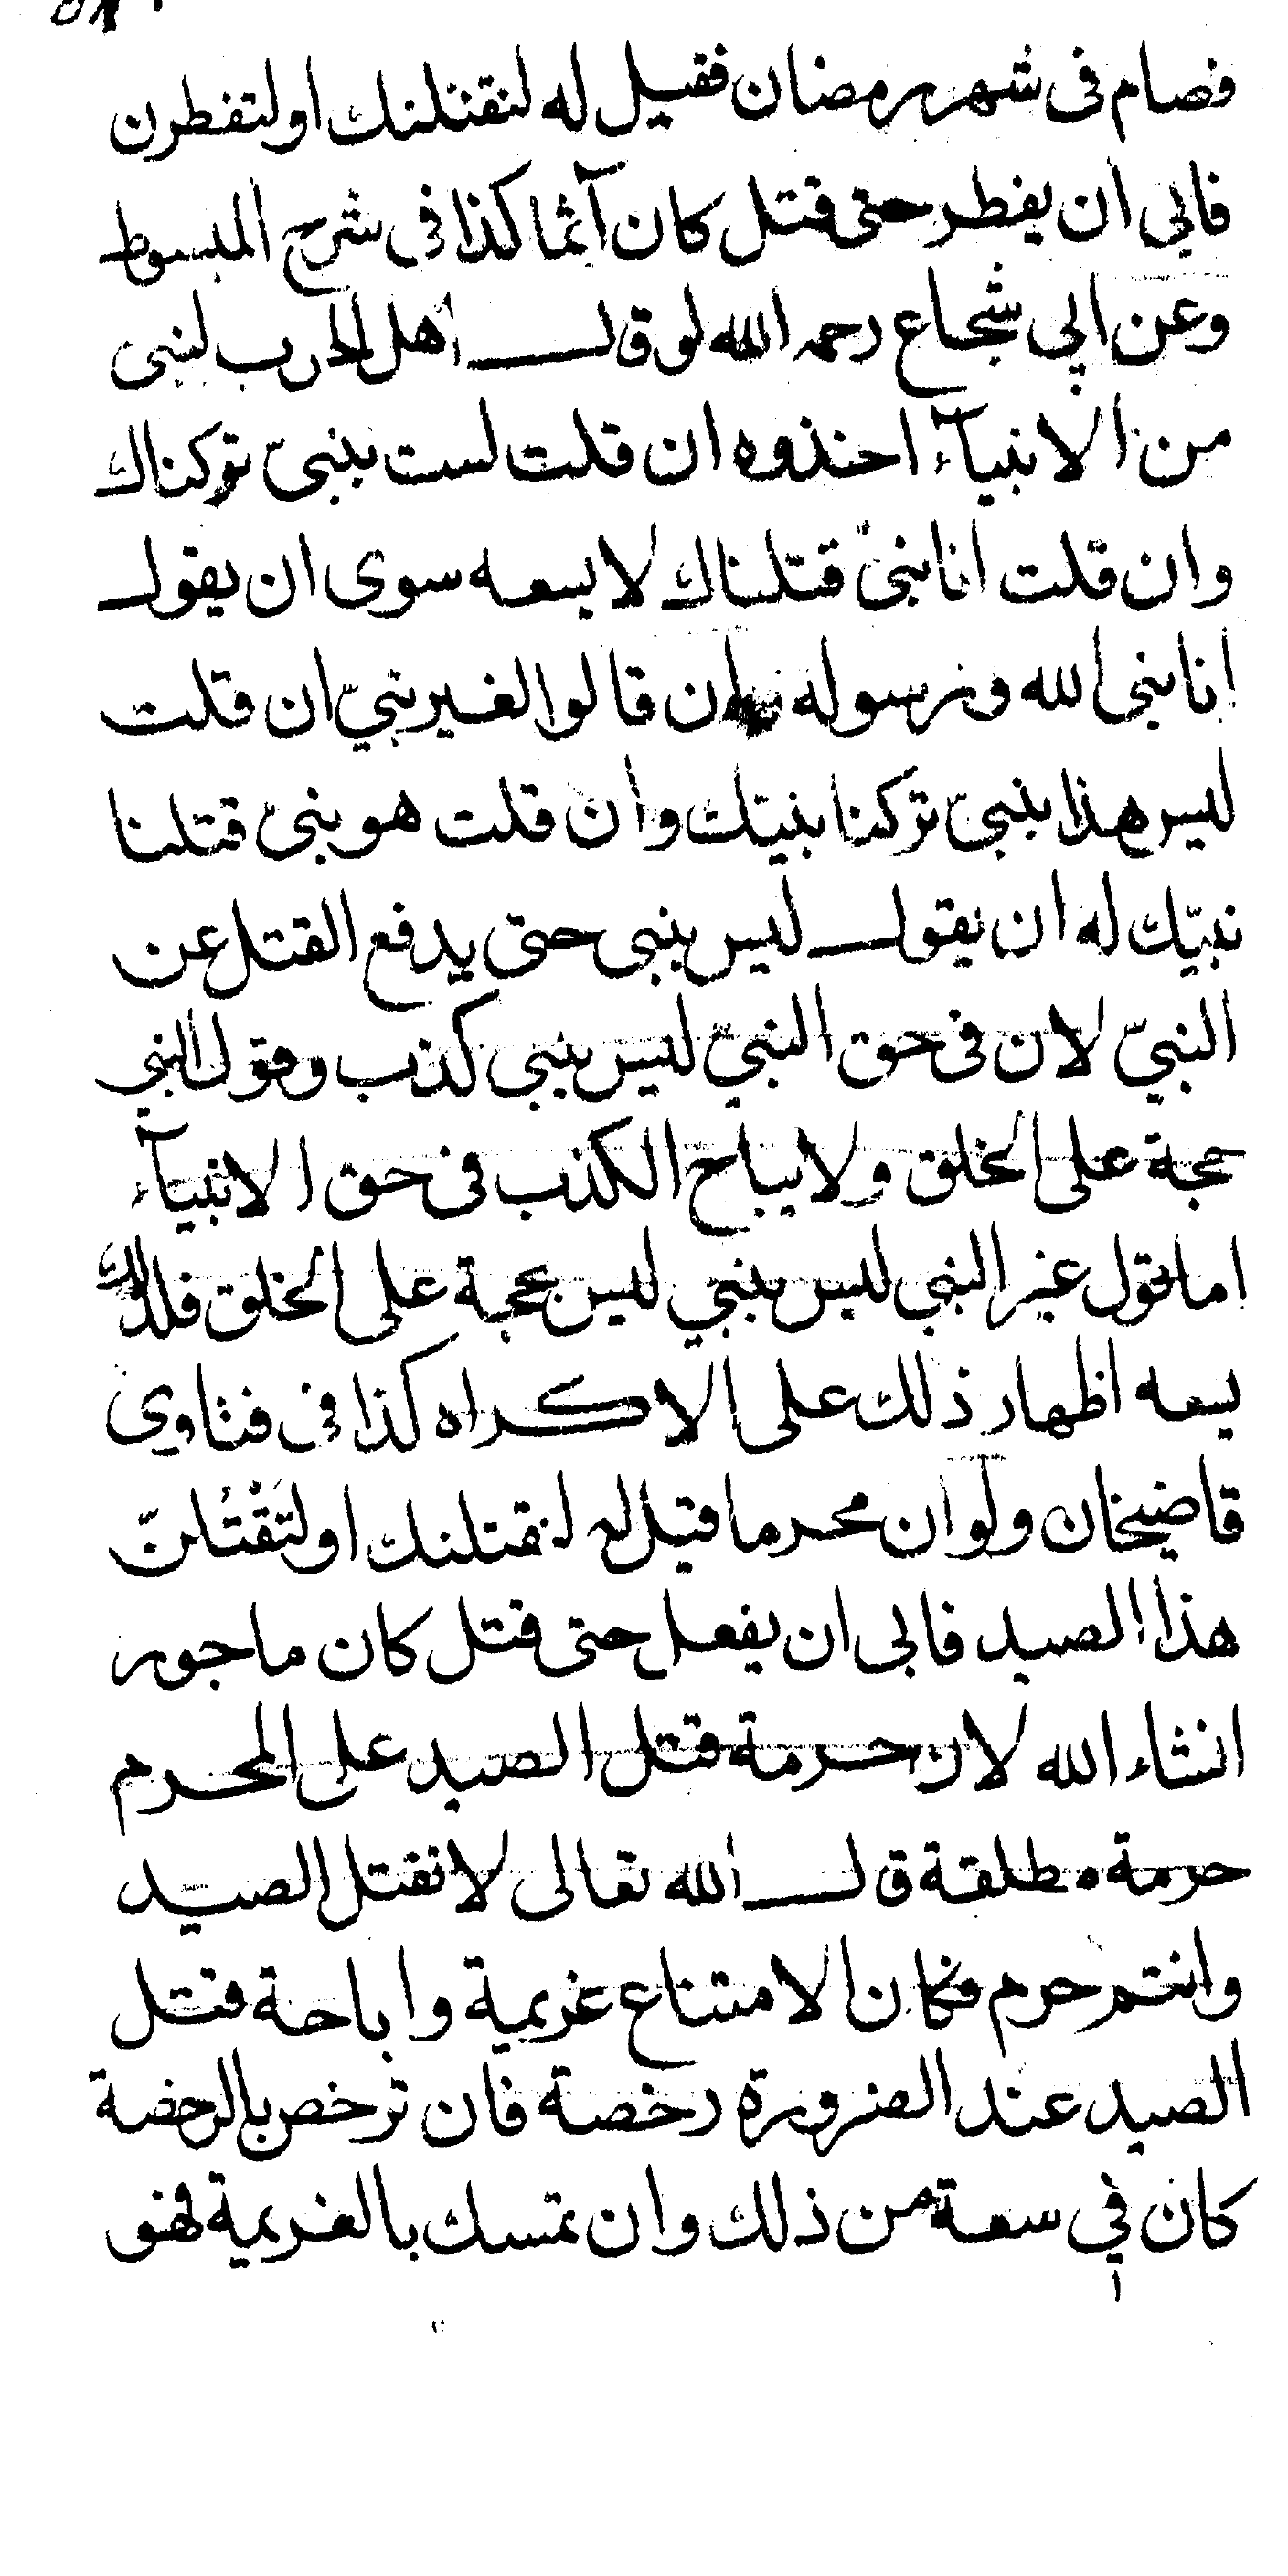 فصام فى شهر رمضان فقيل له لنقتلنك او لتفطرن
فابى ان يفطر حتى قتل كان آثما كذا فى شرح المبسوط
وعن ابي شجاع رحمه الله لو قال اهل الحرب لنبى
من الانبيآء اخذوه ان قلت لست بنبىّ تركناك
وان قلت انا نبىّ قتلناك لا يسعه سوى ان يقول
انا نبى الله ورسوله وان قالوا لغير نبيّ ان قلت
ليس هذا بنبىّ تركنا بنيّك وان قلت هو نبىّ قتلنا
نبيّك له ان يقول ليس بنبى حتى يدفع القتل عن
النبيّ لان فى حق النبىّ ليس بنبى كذب وقول النبي
حجة على الخلق ولا يباح الكذب فى حق الانبيآء
اما قول غير النبي ليس بنبي ليس بحجة على الخلق فلذلك
يسعه اظهار ذلك على الاكراه كذا فى فتاوى
قاضيخان ولو ان محرما قيل له لنقتلنك او لتَقْتُلنّ
هذا الصيد فابى ان يفعل حتى قتل كان ماجور
انشاء الله لان حرمة قتل الصيد على المحرم
حرمة مطلقة قال الله تعالى لا تقتل الصيد
وانتم حرم فكان الامتناع عزيمة واباحة قتل
الصيد عند الضرورة رخصة فان ترخص بالرخصة
كان في سعة من ذلك وان تمسك بالعزيمة فهو